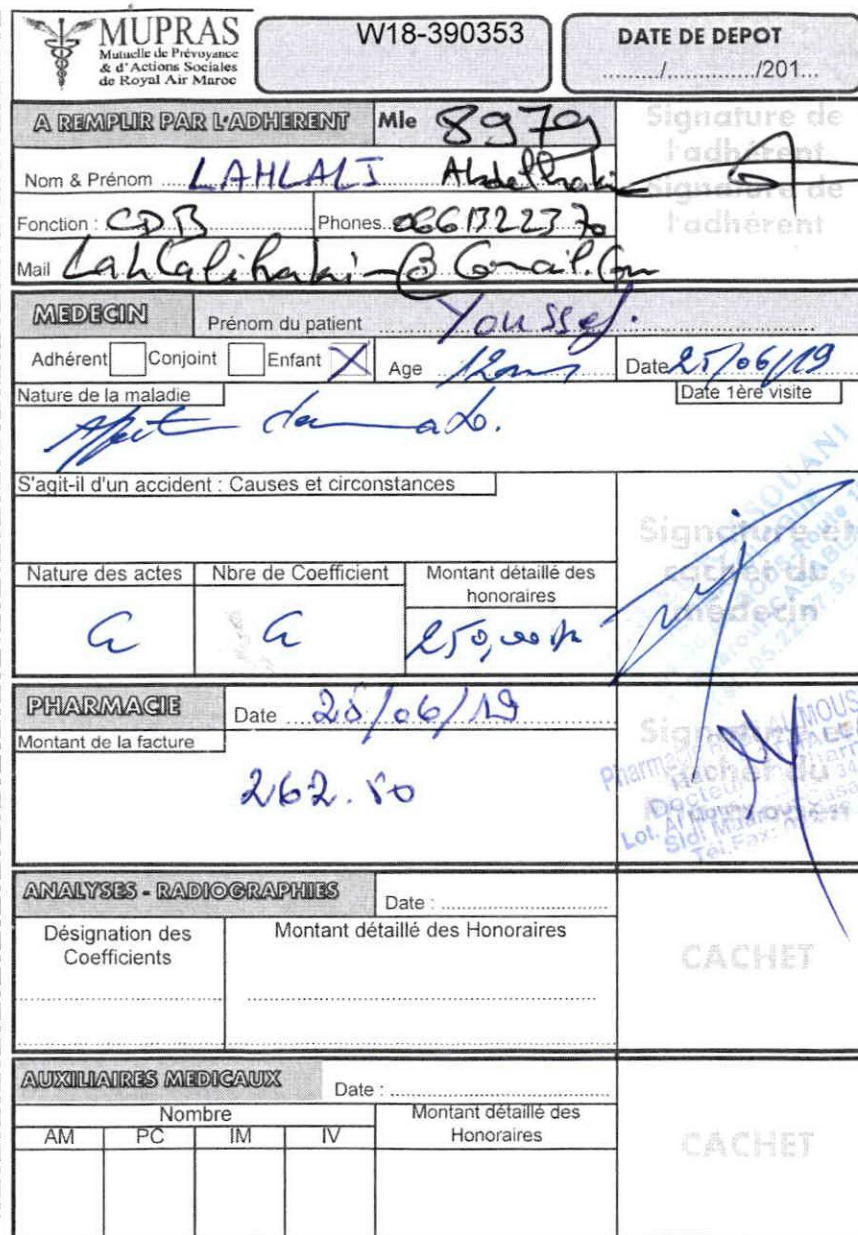 MUPRAS
Mutuelle de Prévoyance
& d'Actions Sociales
de Royal Air Maroc
W18-390353
DATE DE DEPOT
........./.............../201...
A REMPLIR PAR L'ADHERENT Mle 8979
Signature de
l'adhérent
Signature de
l'adhérent
Nom & Prénom LAHLALI Abdelhaki
Fonction : CDB Phones 0661322370
Mail
MEDECIN Prénom du patient Youssef.
Adhérent Conjoint Enfant X Age 12 ans Date 25/06/19
Nature de la maladie Date 1ère visite
S'agit-il d'un accident : Causes et circonstances
Signature et
cachet du
médecin
Nature des actes Nbre de Coefficient Montant détaillé des
honoraires
250,00
PHARMACIE Date 25/06/19
Montant de la facture
262.50
Signature et
cachet du
ANALYSES - RADIOGRAPHIES Date :
Désignation des
Coefficients
Montant détaillé des Honoraires
CACHET
AUXILIAIRES MEDICAUX Date :
Nombre Montant détaillé des
Honoraires
AM PC IM IV
CACHET